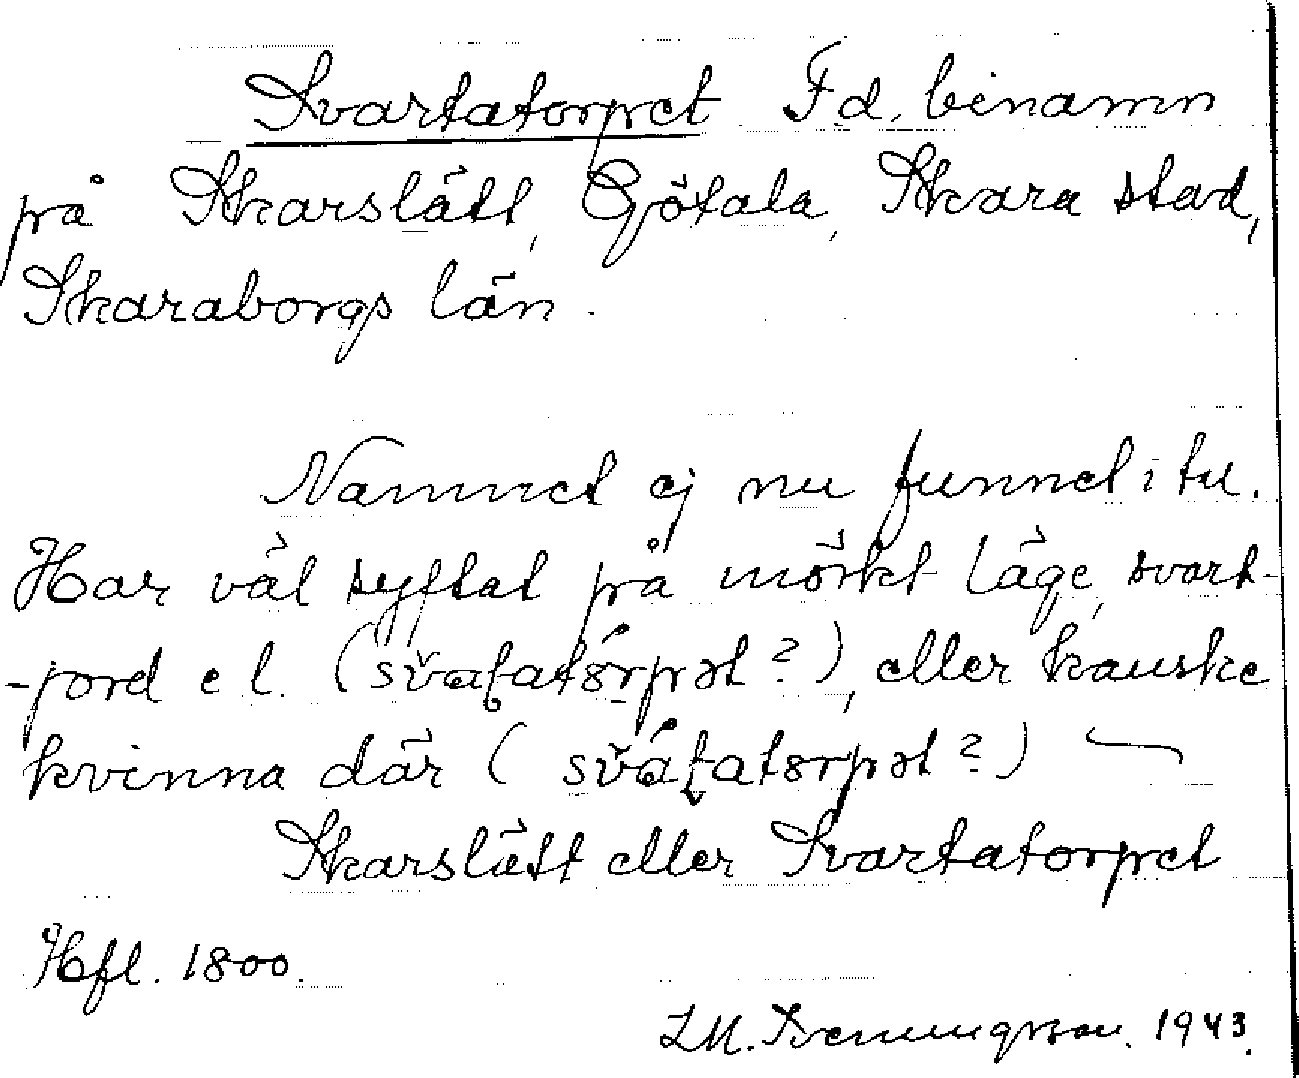 Svartatorpet Fd. binamn
på Skarslätt, Götala, Skara stad,
Skaraborgs län.
Namnet ej nu funnet i tu.
Har väl syftat på mörkt läge, svart-
-jord el. (svaʈatörpət?), eller kanske
kvinna där (sváʈatørpət?)
Skarslätt eller Svartatorpet
Hfl. 1800.
1943.